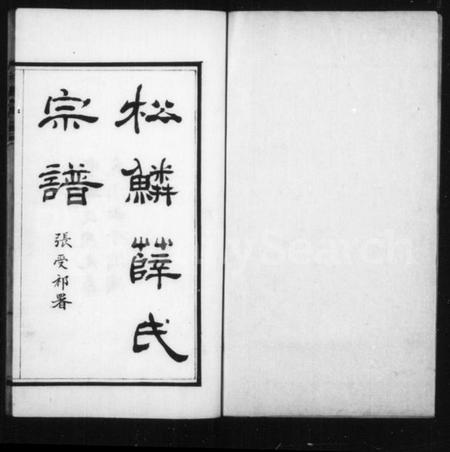 松鱗薛氏
宗譜
張受祁署
FamilySearch